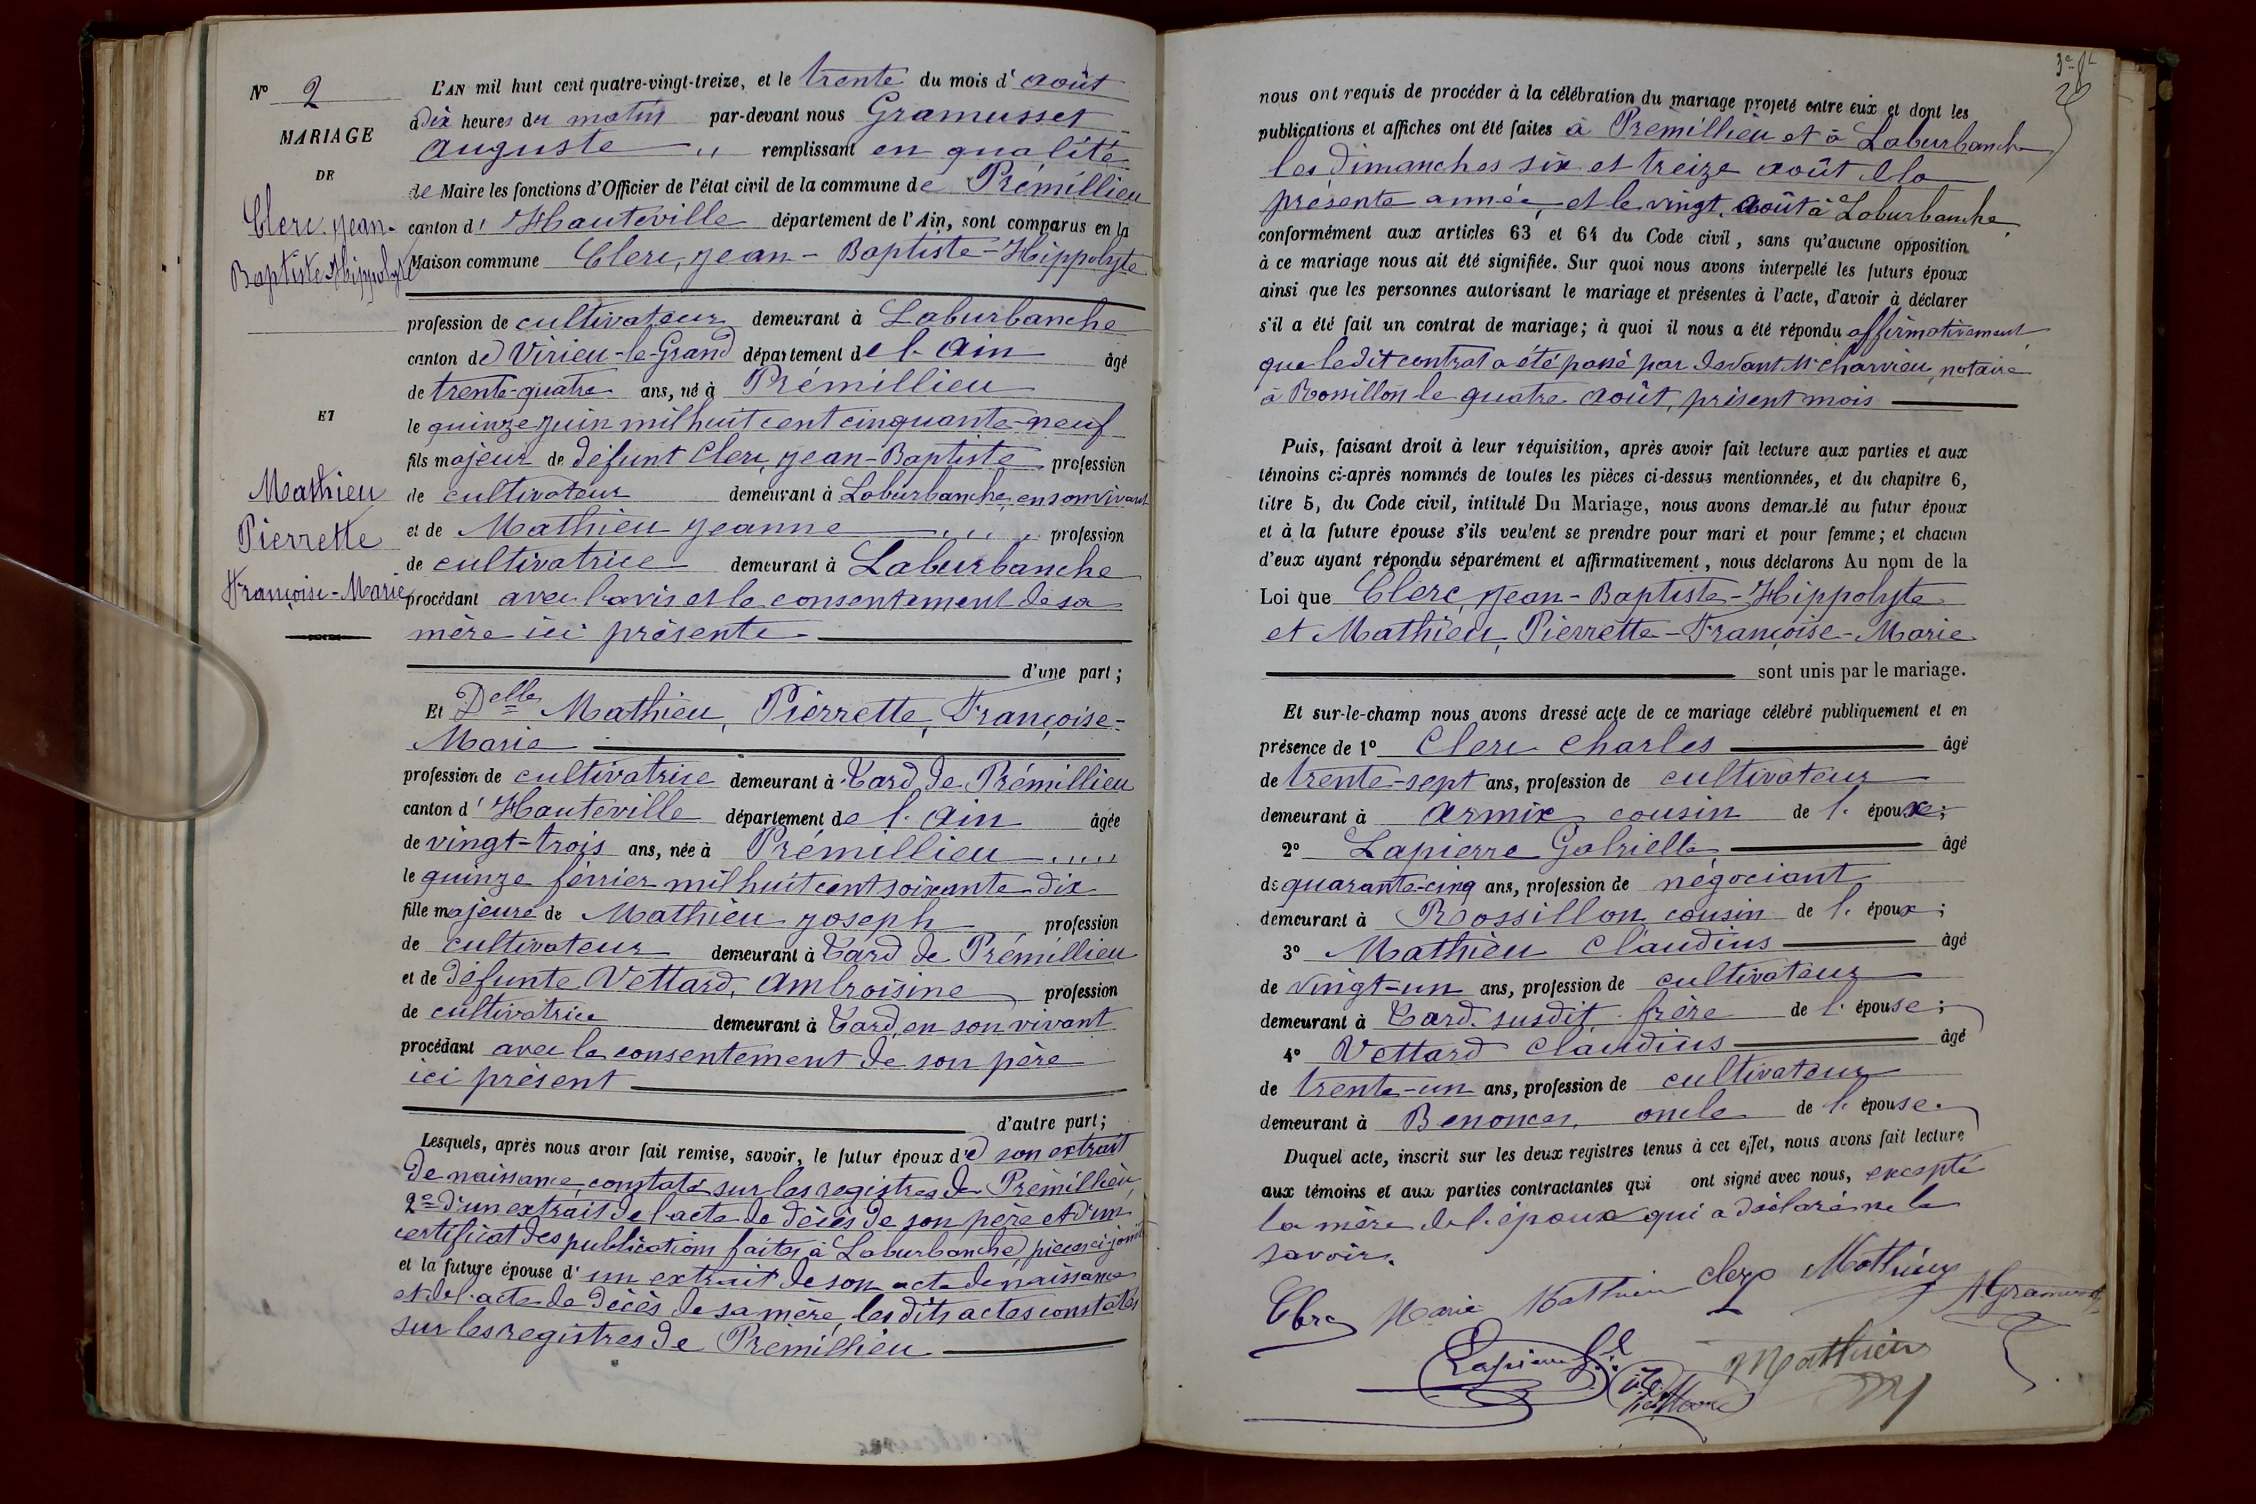 N° 2
MARIAGE
DE
Clerc, Jean-
Baptiste-Hippolyte
ET
Mathieu
Pierrette
Françoise-Marie
L'AN mil huit cent quatre-vingt-treize, et le trente du mois d'août
à dix heures du matin par-devant nous Gramusset
Auguste remplissant en qualité
de Maire les fonctions d'Officier de l'état civil de la commune de Prémillieu
canton d'Hauteville département de l'Ain, sont comparus en la
Maison commune Clerc, Jean-Baptiste-Hippolyte
profession de cultivateur demeurant à Laburbanche
canton de Virieu-le-Grand département de l'Ain âgé
de trente-quatre ans, né à Prémillieu
le quinze juin mil huit cent cinquante-neuf
fils majeur de défunt Clerc, Jean-Baptiste profession
de cultivateur demeurant à Laburbanche, en son vivant
et de Mathieu Jeanne profession
de cultivatrice demeurant à Laburbanche
procédant avec l'avis et le consentement de sa
mère ici présente
d'une part;
Et Delle Mathieu, Pierrette, Françoise-
Marie
profession de cultivatrice demeurant à Tard de Prémillieu
canton d'Hauteville département de l'Ain âgée
de vingt-trois ans, née à Prémillieu
le quinze février mil huit cent soixante-dix
fille majeure de Mathieu Joseph profession
de cultivateur demeurant à Tard de Prémillieu
et de défunte Vettard, Ambroisine profession
de cultivatrice demeurant à Tard, en son vivant
procédant avec le consentement de son père
ici présent
d'autre part;
Lesquels, après nous avoir fait remise, savoir, le futur époux de son extrait
de naissance, constaté sur les registres de Prémillieu,
2° d'un extrait de l'acte de décès de son père et d'un
certificat des publications faites à Laburbanche, pièces ci-jointes
et la future épouse d'un extrait de son acte de naissance
et de l'acte de décès de sa mère, les dits actes constatés
sur les registres de Prémillieu
nous ont requis de procéder à la célébration du mariage projeté entre eux et dont les
publications et affiches ont été faites à Prémillieu et à Laburbanche
les dimanches six et treize août de la
présente année, et le vingt août à Laburbanche,
conformément aux articles 63 et 64 du Code civil, sans qu'aucune opposition
à ce mariage nous ait été signifiée. Sur quoi nous avons interpellé les futurs époux
ainsi que les personnes autorisant le mariage et présentes à l'acte, d'avoir à déclarer
s'il a été fait un contrat de mariage; à quoi il nous a été répondu affirmativement
que ledit contrat a été passé par devant Me Charvieu, notaire
à Rossillon le quatre août, présent mois
Puis, faisant droit à leur réquisition, après avoir fait lecture aux parties et aux
témoins ci-après nommés de toutes les pièces ci-dessus mentionnées, et du chapitre 6,
titre 5, du Code civil, intitulé Du Mariage, nous avons demandé au futur époux
et à la future épouse s'ils veulent se prendre pour mari et pour femme; et chacun
d'eux ayant répondu séparément et affirmativement, nous déclarons Au nom de la
Loi que Clerc, Jean-Baptiste-Hippolyte
et Mathieu, Pierrette-Françoise-Marie
sont unis par le mariage.
Et sur-le-champ nous avons dressé acte de ce mariage célébré publiquement et en
présence de 1° Clerc Charles âgé
de trente-sept ans, profession de cultivateur
demeurant à Armix cousin de l'époux;
2° Lapierre Gabrielle âgé
de quarante-cinq ans, profession de négociant
demeurant à Rossillon cousin de l'époux;
3° Mathieu Claudius âgé
de vingt-un ans, profession de cultivateur
demeurant à Tard susdit, frère de l'épouse;
4° Vettard Claudius âgé
de trente-un ans, profession de cultivateur
demeurant à Benonces, oncle de l'épouse.
Duquel acte, inscrit sur les deux registres tenus à cet effet, nous avons fait lecture
aux témoins et aux parties contractantes qui ont signé avec nous, excepté
la mère de l'époux qui a déclaré ne le
savoir.
Clerc Marie Mathieu Clerc Mathieu AGramusset
Lapierre
Mathieu